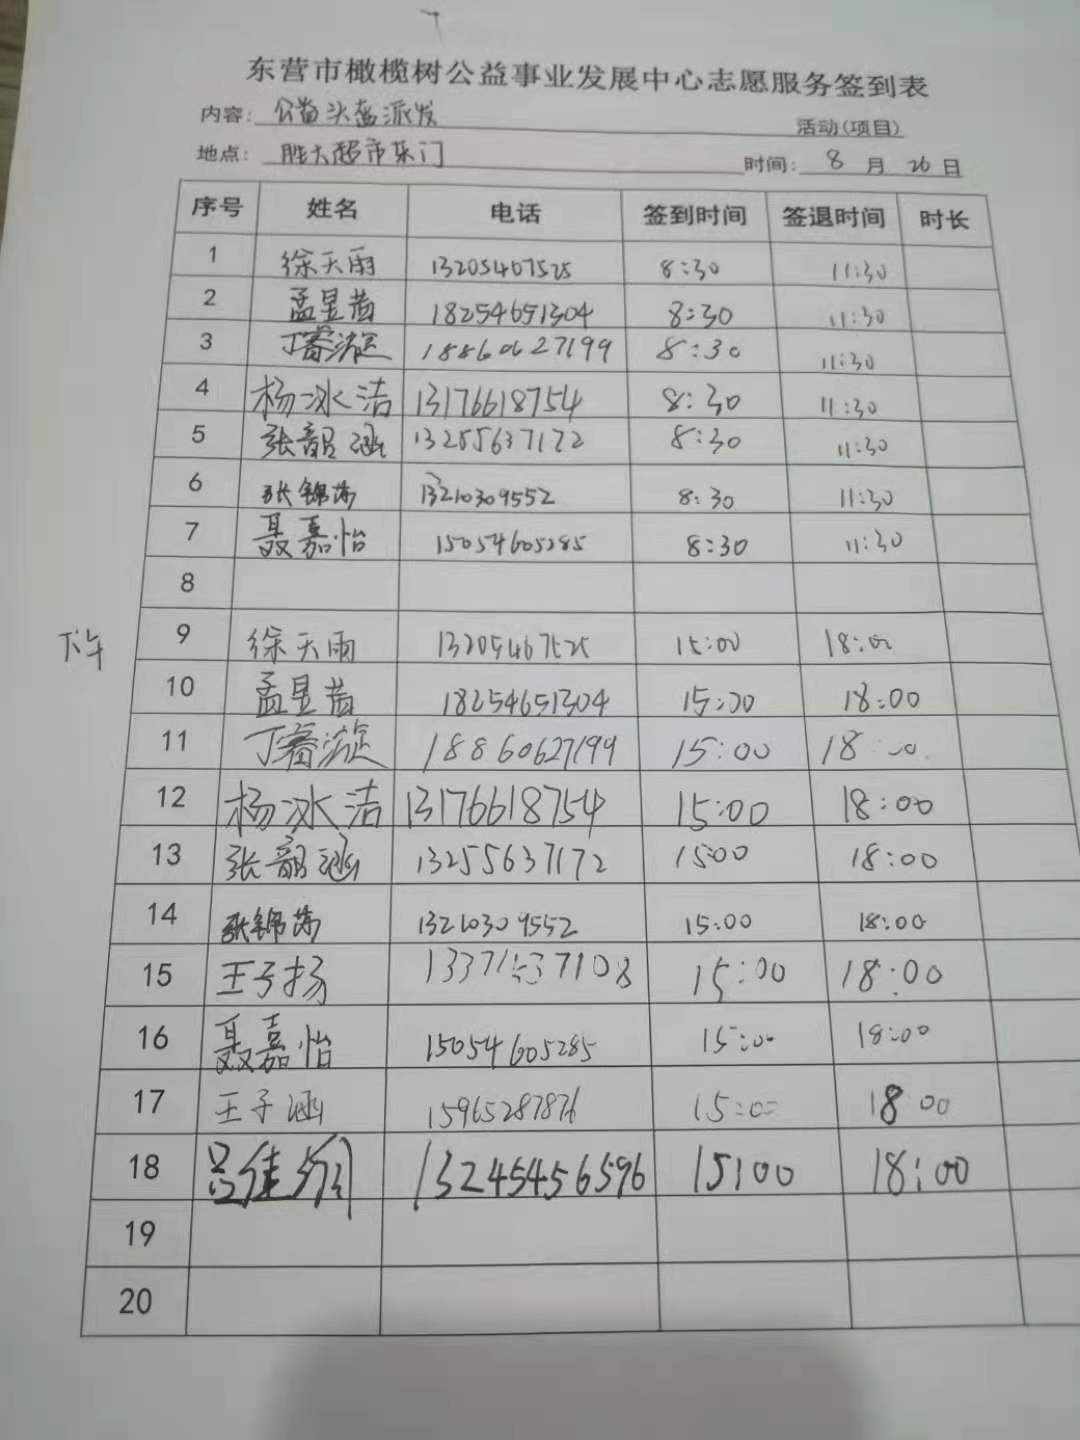 东营市橄榄树公益事业发展中心志愿服务签到表
内容: 公益头盔派发 活动(项目)
地点: 胜大超市东门 时间: 8 月 26 日
序号 姓名 电话 签到时间 签退时间 时长
1 徐天雨 13205467525 8:30 11:30
2 孟昱茜 18254651304 8:30 11:30
3 丁睿漩 18860627199 8:30 11:30
4 杨冰洁 13176618754 8:30 11:30
5 张韶涵 13255637172 8:30 11:30
6 张锦 13210309552 8:30 11:30
7 聂嘉怡 15054605285 8:30 11:30
8
下午
9 徐天雨 13205467525 15:00 18:00
10 孟昱茜 18254651304 15:00 18:00
11 丁睿漩 18860627199 15:00 18:00
12 杨冰洁 13176618754 15:00 18:00
13 张韶涵 13255637172 1500 18:00
14 张锦 13210309552 15:00 18:00
15 王子扬 13371537108 15:00 18:00
16 聂嘉怡 15054605285 15:00 18:00
17 王子涵 15965287876 15:00 18:00
18 吕佳 13245456596 15:00 18:00
19
20